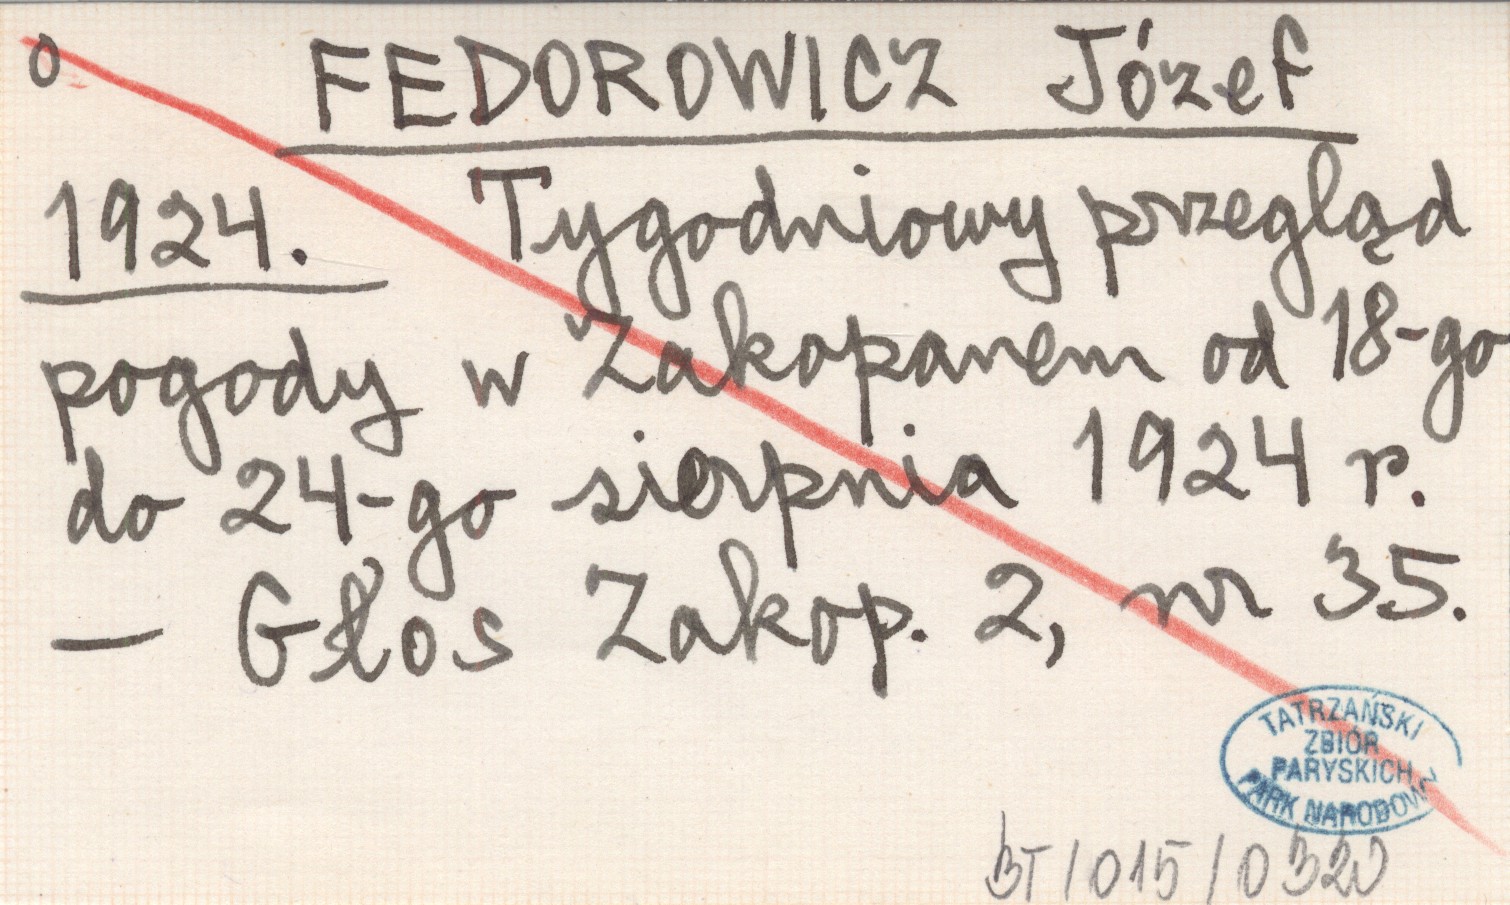 o FEDOROWICZ Józef
1924. Tygodniowy przegląd
pogody w Zakopanem od 18-go
do 24-go sierpnia 1924 r.
— Głos Zakop. 2, nr 35.
TATRZAŃSKI
ZBIÓR
PARYSKICH
PARK NARODOWY
BT/015/0320